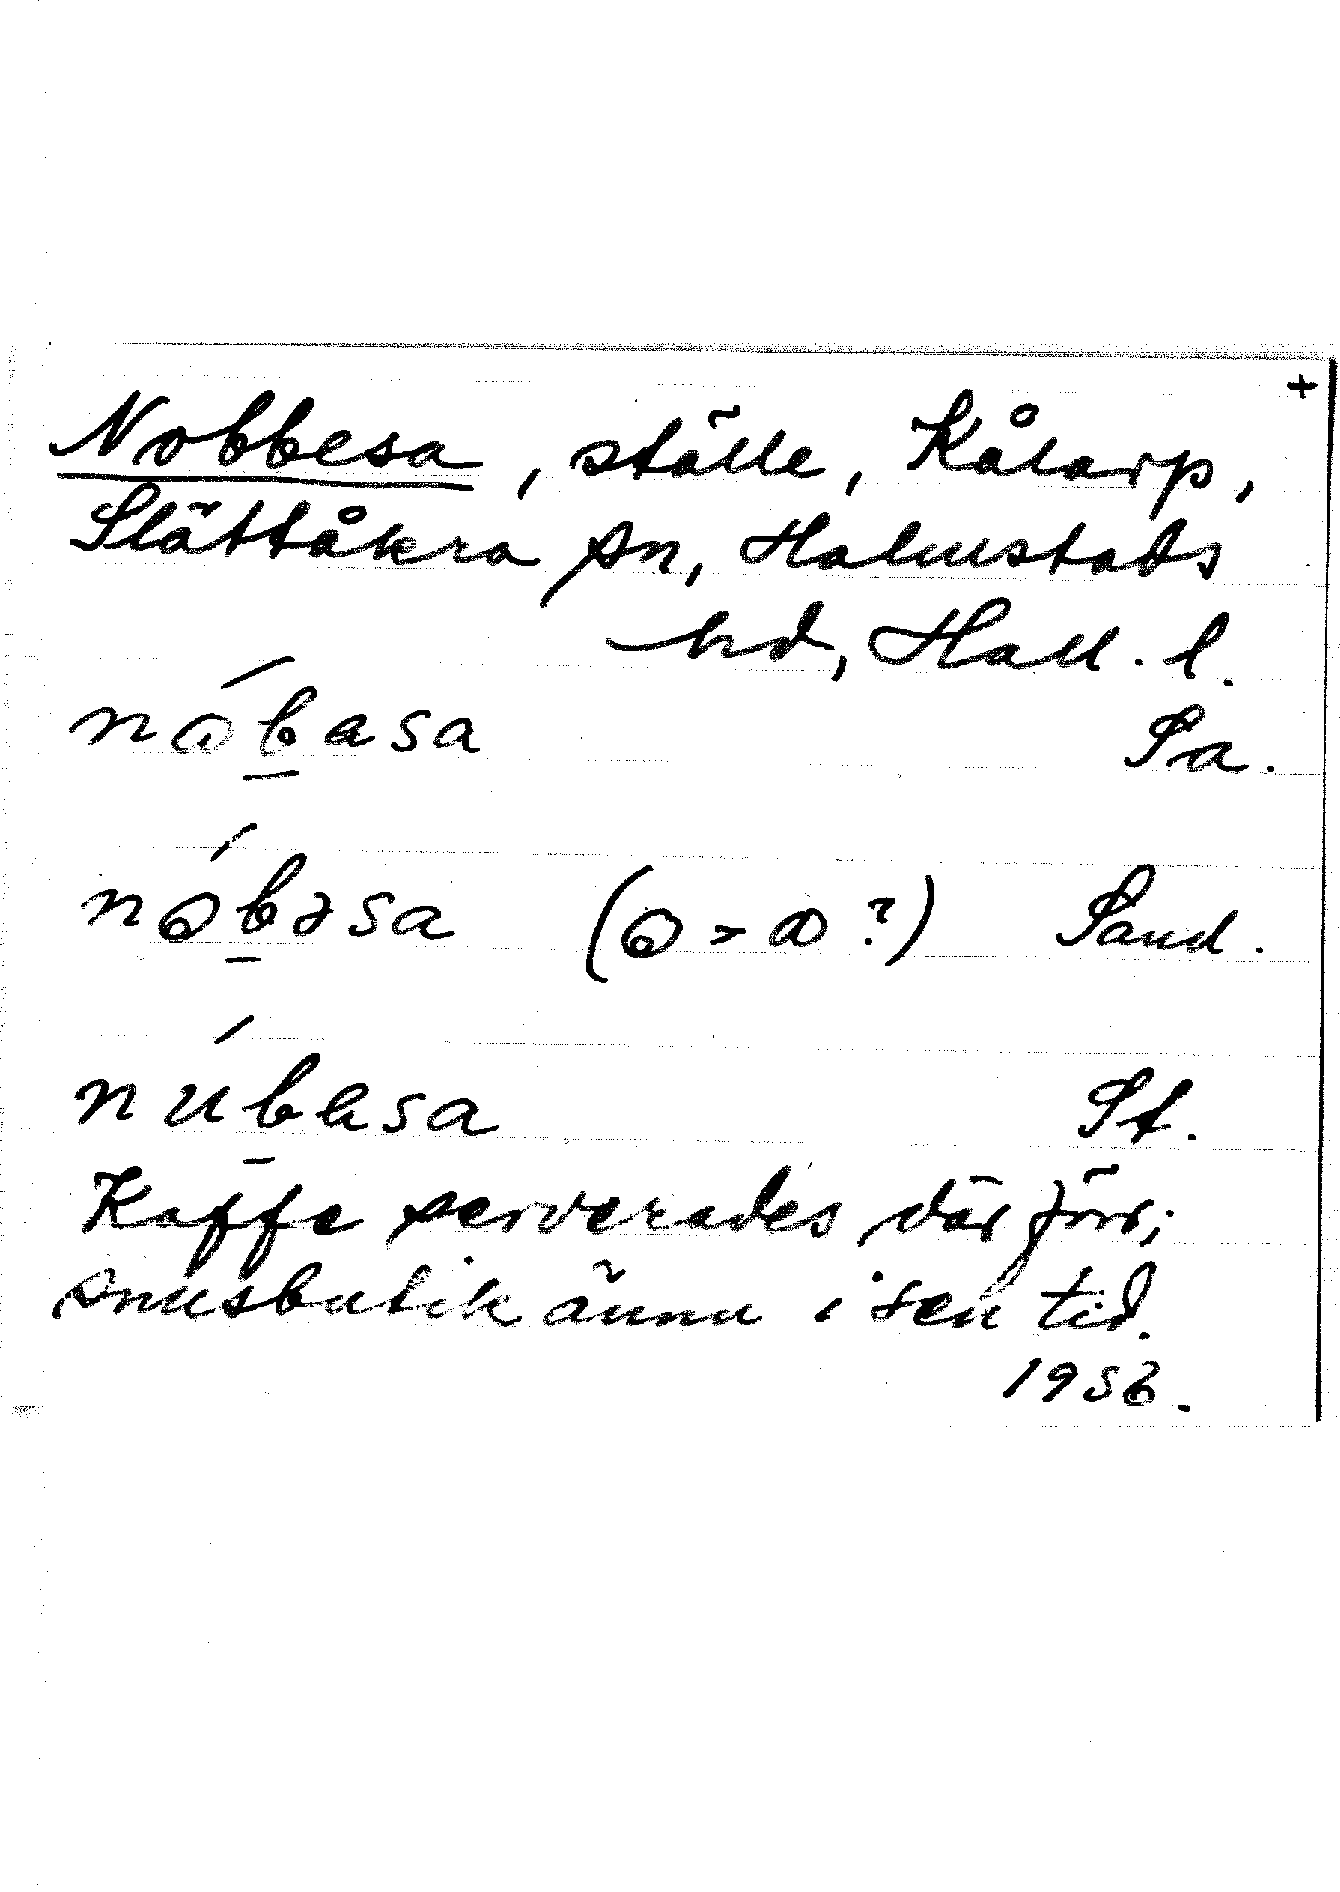 +
Nobbesa, ställe, Kålarp,
Slättåkra sn, Halmstads
hd, Hall. l.
nɷ́b̲asa Sa.
nɷ́b̲əsa (ɷ > ɷ ?) Sand.
núb̲asa St.
Kaffe serverades där förr;
snusbutik ännu i sen tid.
1956.